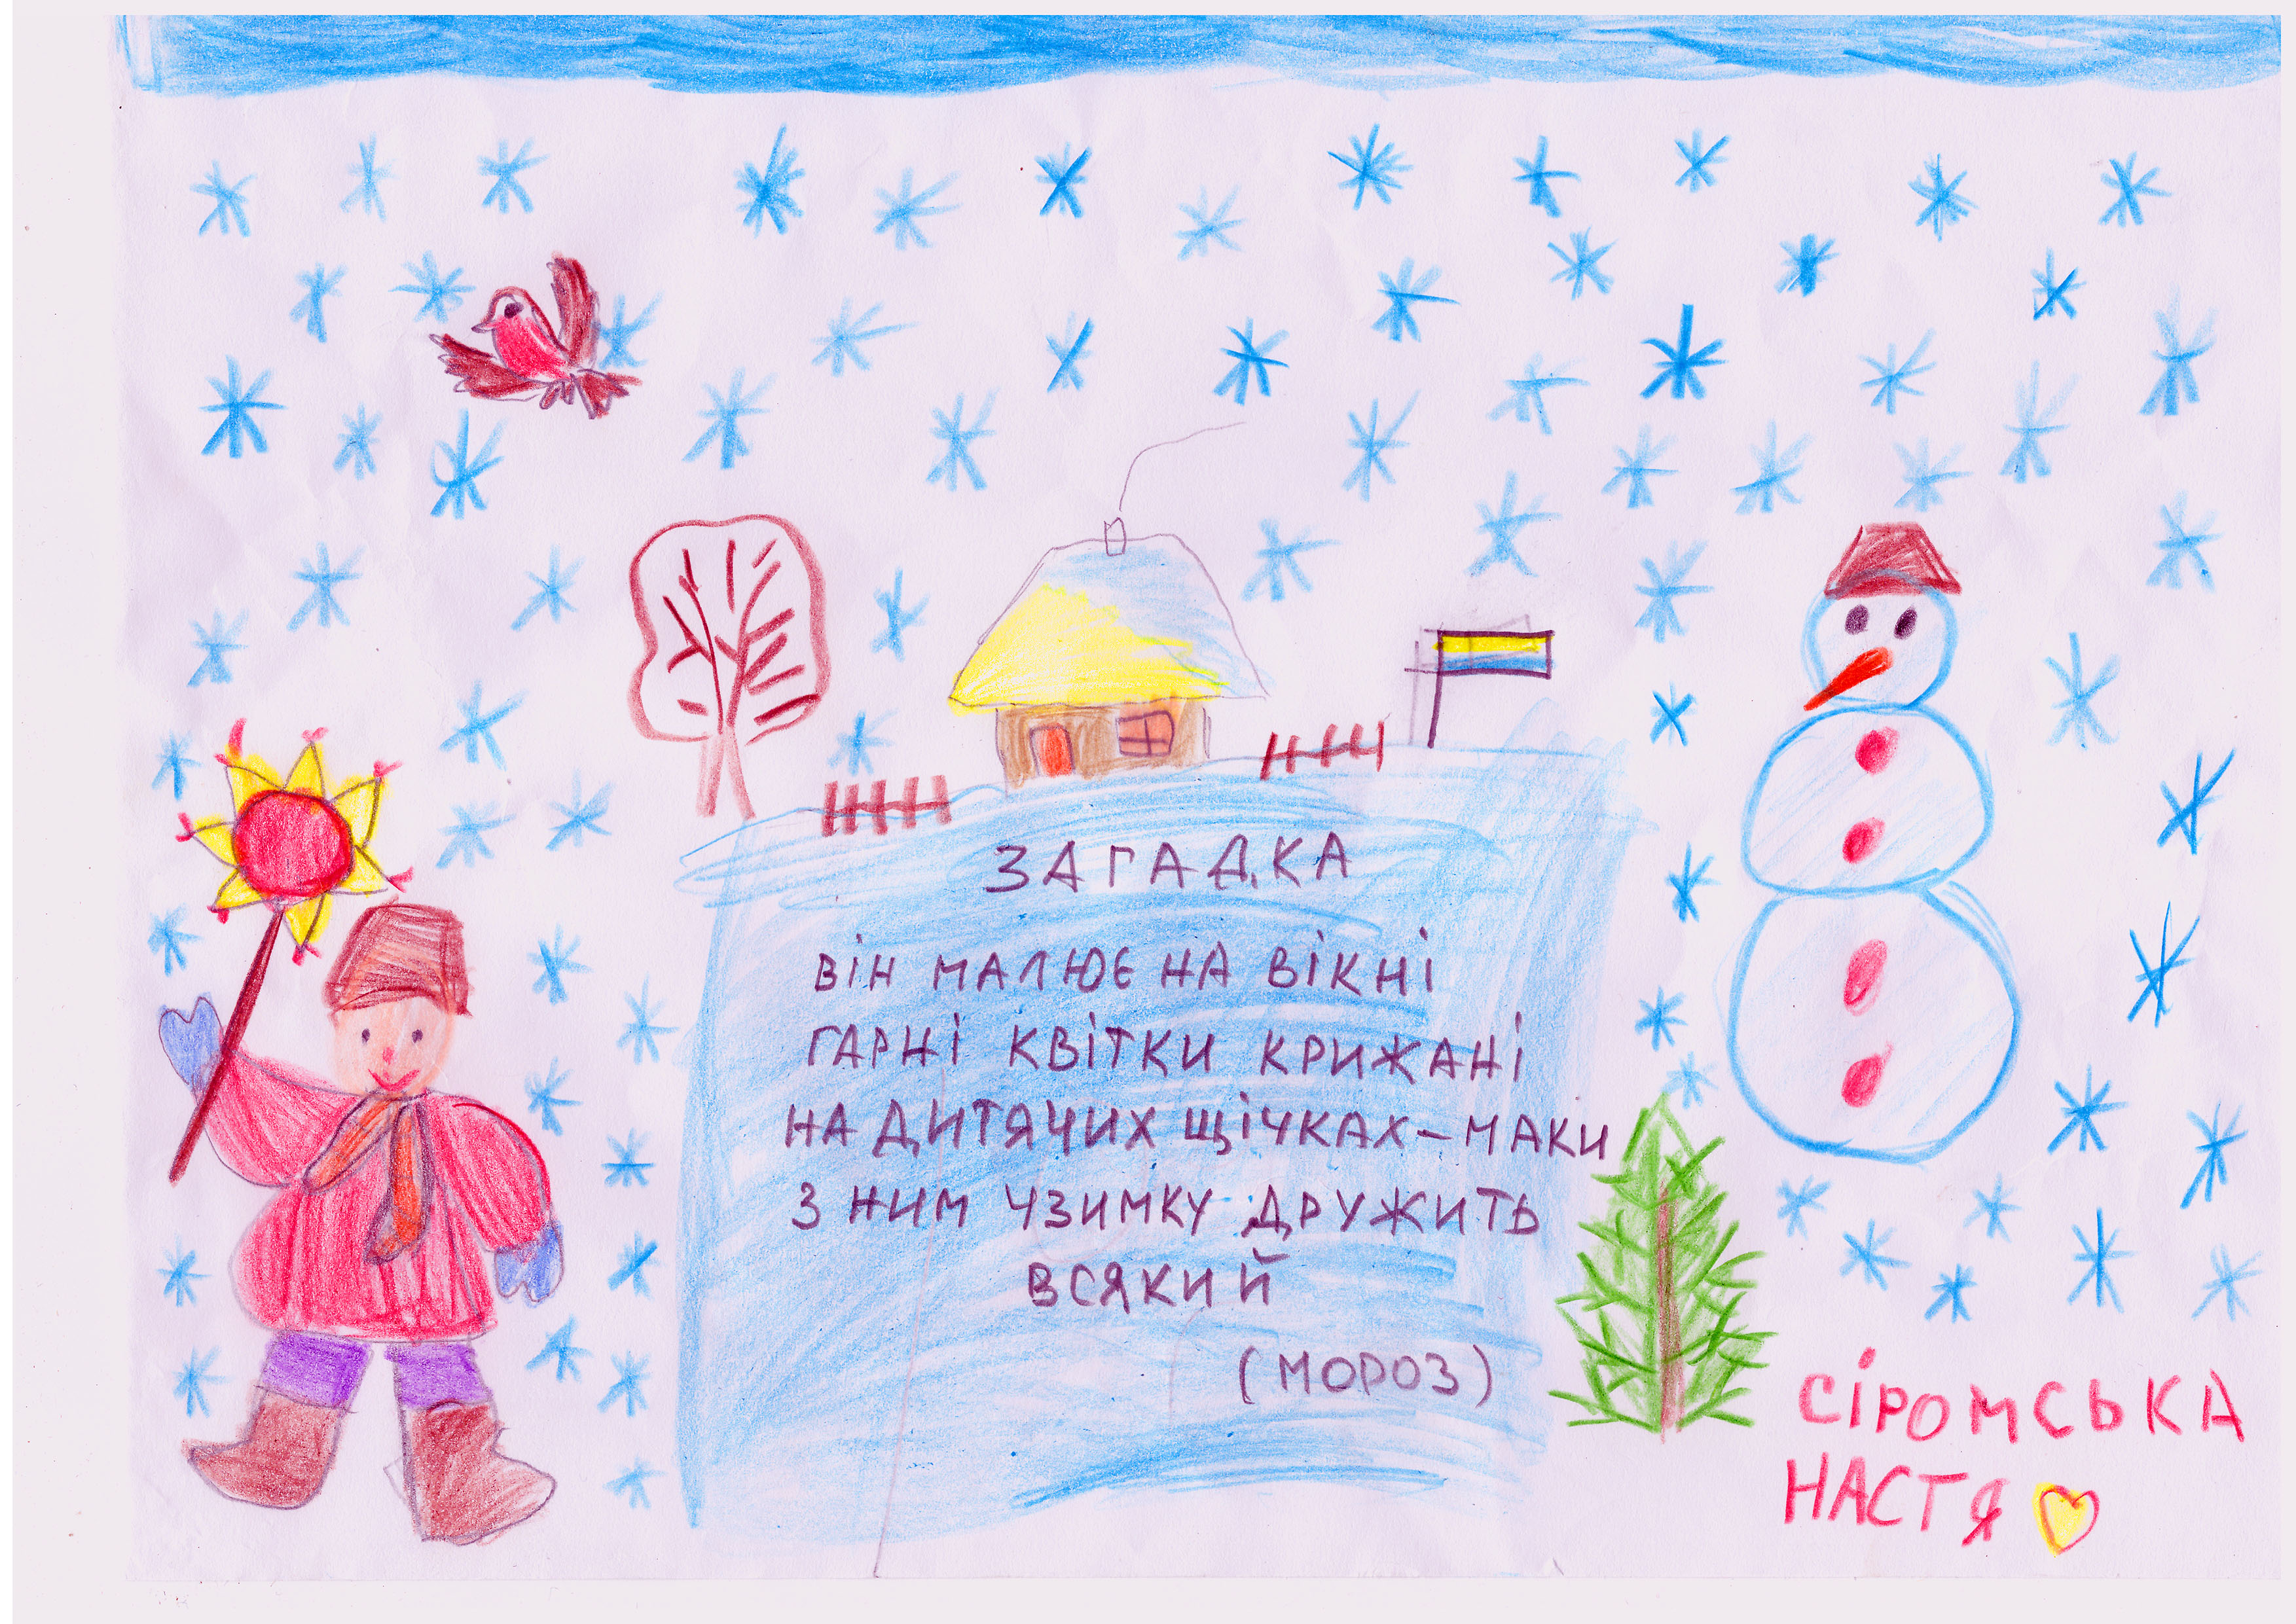 ЗАГАДКА
ВІН МАЛЮЄ НА ВІКНІ
ГАРНІ КВІТКИ КРИЖАНІ
НА ДИТЯЧИХ ЩІЧКАХ – МАКИ
З НИМ УЗИМКУ ДРУЖИТЬ
ВСЯКИЙ
(МОРОЗ)
СІРОМСЬКА
НАСТЯ